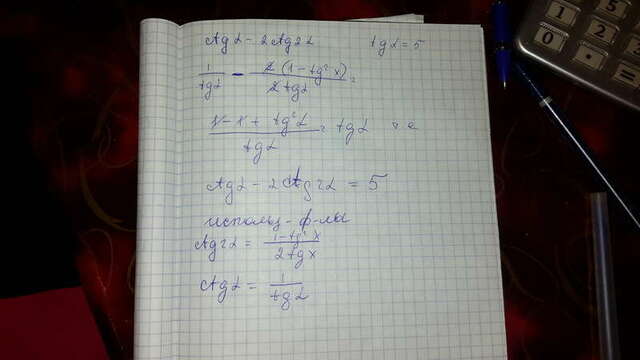 ctg α - 2ctg 2α    tg α = 5
1/tg α - 2(1 - tg² x)/2 tg α =
(1 - 1 + tg² α)/tg α = tg α    т е
ctg α - 2 ctg 2α = 5
использ - ф-лы
ctg 2α = (1 - tg² x)/(2 tg x)
ctg α = 1/tg α
1 2 5
0 .